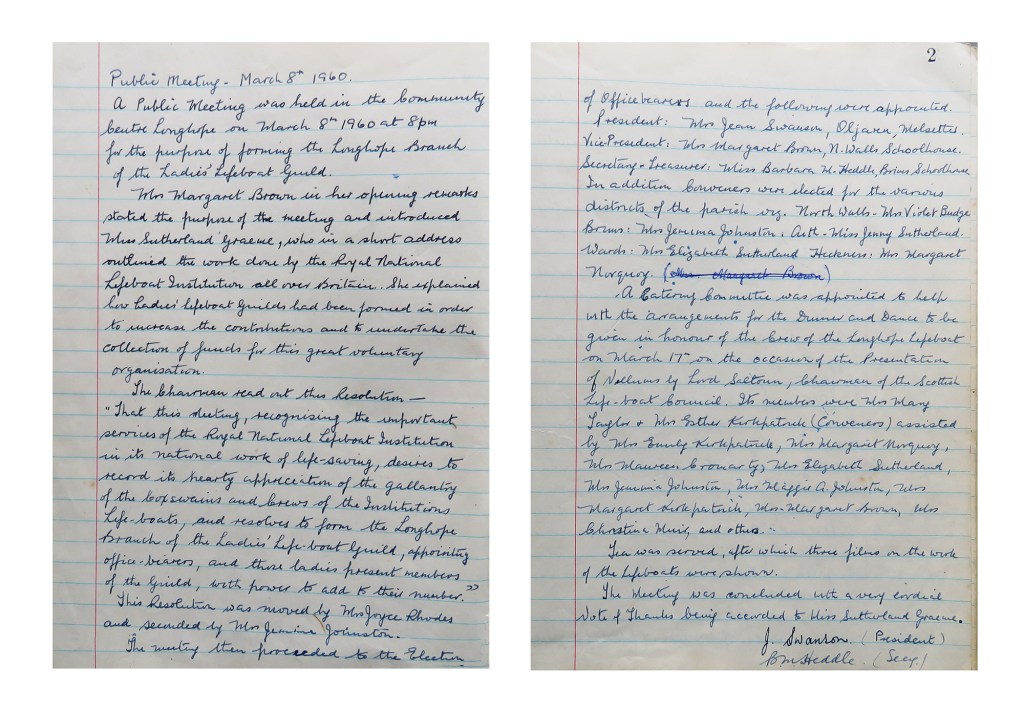 Public Meeting - March 8th 1960.
A Public Meeting was held in the Community
Centre Longhope on March 8th 1960 at 8pm
for the purpose of forming the Longhope Branch
of the Ladies' Lifeboat Guild.
Mrs Margaret Brown in her opening remarks
stated the purpose of the meeting and introduced
Miss Sutherland Graeme, who in a short address
outlined the work done by the Royal National
Lifeboat Institution all over Britain. She explained
how Ladies' lifeboat Guilds had been formed in order
to increase the contributions and to undertake the
collection of funds for this great voluntary
organisation.
The Chairman read out this Resolution —
"That this Meeting, recognising the important
services of the Royal National Lifeboat Institution
in its national work of life-saving, desires to
record its hearty appreciation of the gallantry
of the Coxswains and Crews of the Institutions
Life-boats, and resolves to form the Longhope
Branch of the Ladies' Life-boat Guild, appointing
office-bearers, and those ladies present members
of the Guild, with power to add to their number."
This Resolution was moved by Mrs Joyce Rhodes
and seconded by Mrs Jemima Johnston.
The meeting then proceeded to the Election
2
of Officebearers and the following were appointed.
President: Mrs Jean Swanson, Oljavea, Melsetter.
Vice President: Mrs Margaret Brown, N. Walls Schoolhouse.
Secretary & Treasurer: Miss Barbara M. Heddle, Brims Schoolhouse
In addition Conveners were elected for the various
districts of the parish viz. North Walls - Mrs Violet Budge
Brims: Mrs Jemima Johnston: Aith - Miss Jenny Sutherland.
Wards: Mrs Elizabeth Sutherland Heckness: Mrs Margaret
Norquoy. (Mrs Margaret Brown)
A Catering Committee was appointed to help
with the arrangements for the Dinner and Dance to be
given in honour of the Crew of the Longhope Lifeboat
on March 17th on the occasion of the Presentation
of Vellums by Lord Saltoun, Chairman of the Scottish
Life-boat Council. Its members were Mrs Mary
Taylor & Mrs Esther Kirkpatrick (Conveners) assisted
by Mrs Emily Kirkpatrick, Mrs Margaret Norquoy,
Mrs Maureen Cromarty, Mrs Elizabeth Sutherland,
Mrs Jemima Johnston, Mrs Maggie A. Johnston, Mrs
Margaret Kirkpatrick, Mrs Margaret Brown, Mrs
Christina Muir, and others.-
Tea was served, after which three films on the work
of the Lifeboats were shown.
The Meeting was concluded with a very cordial
Vote of Thanks being accorded to Miss Sutherland Graeme.
J. Swanson. (President)
B M Heddle. (Secy.)